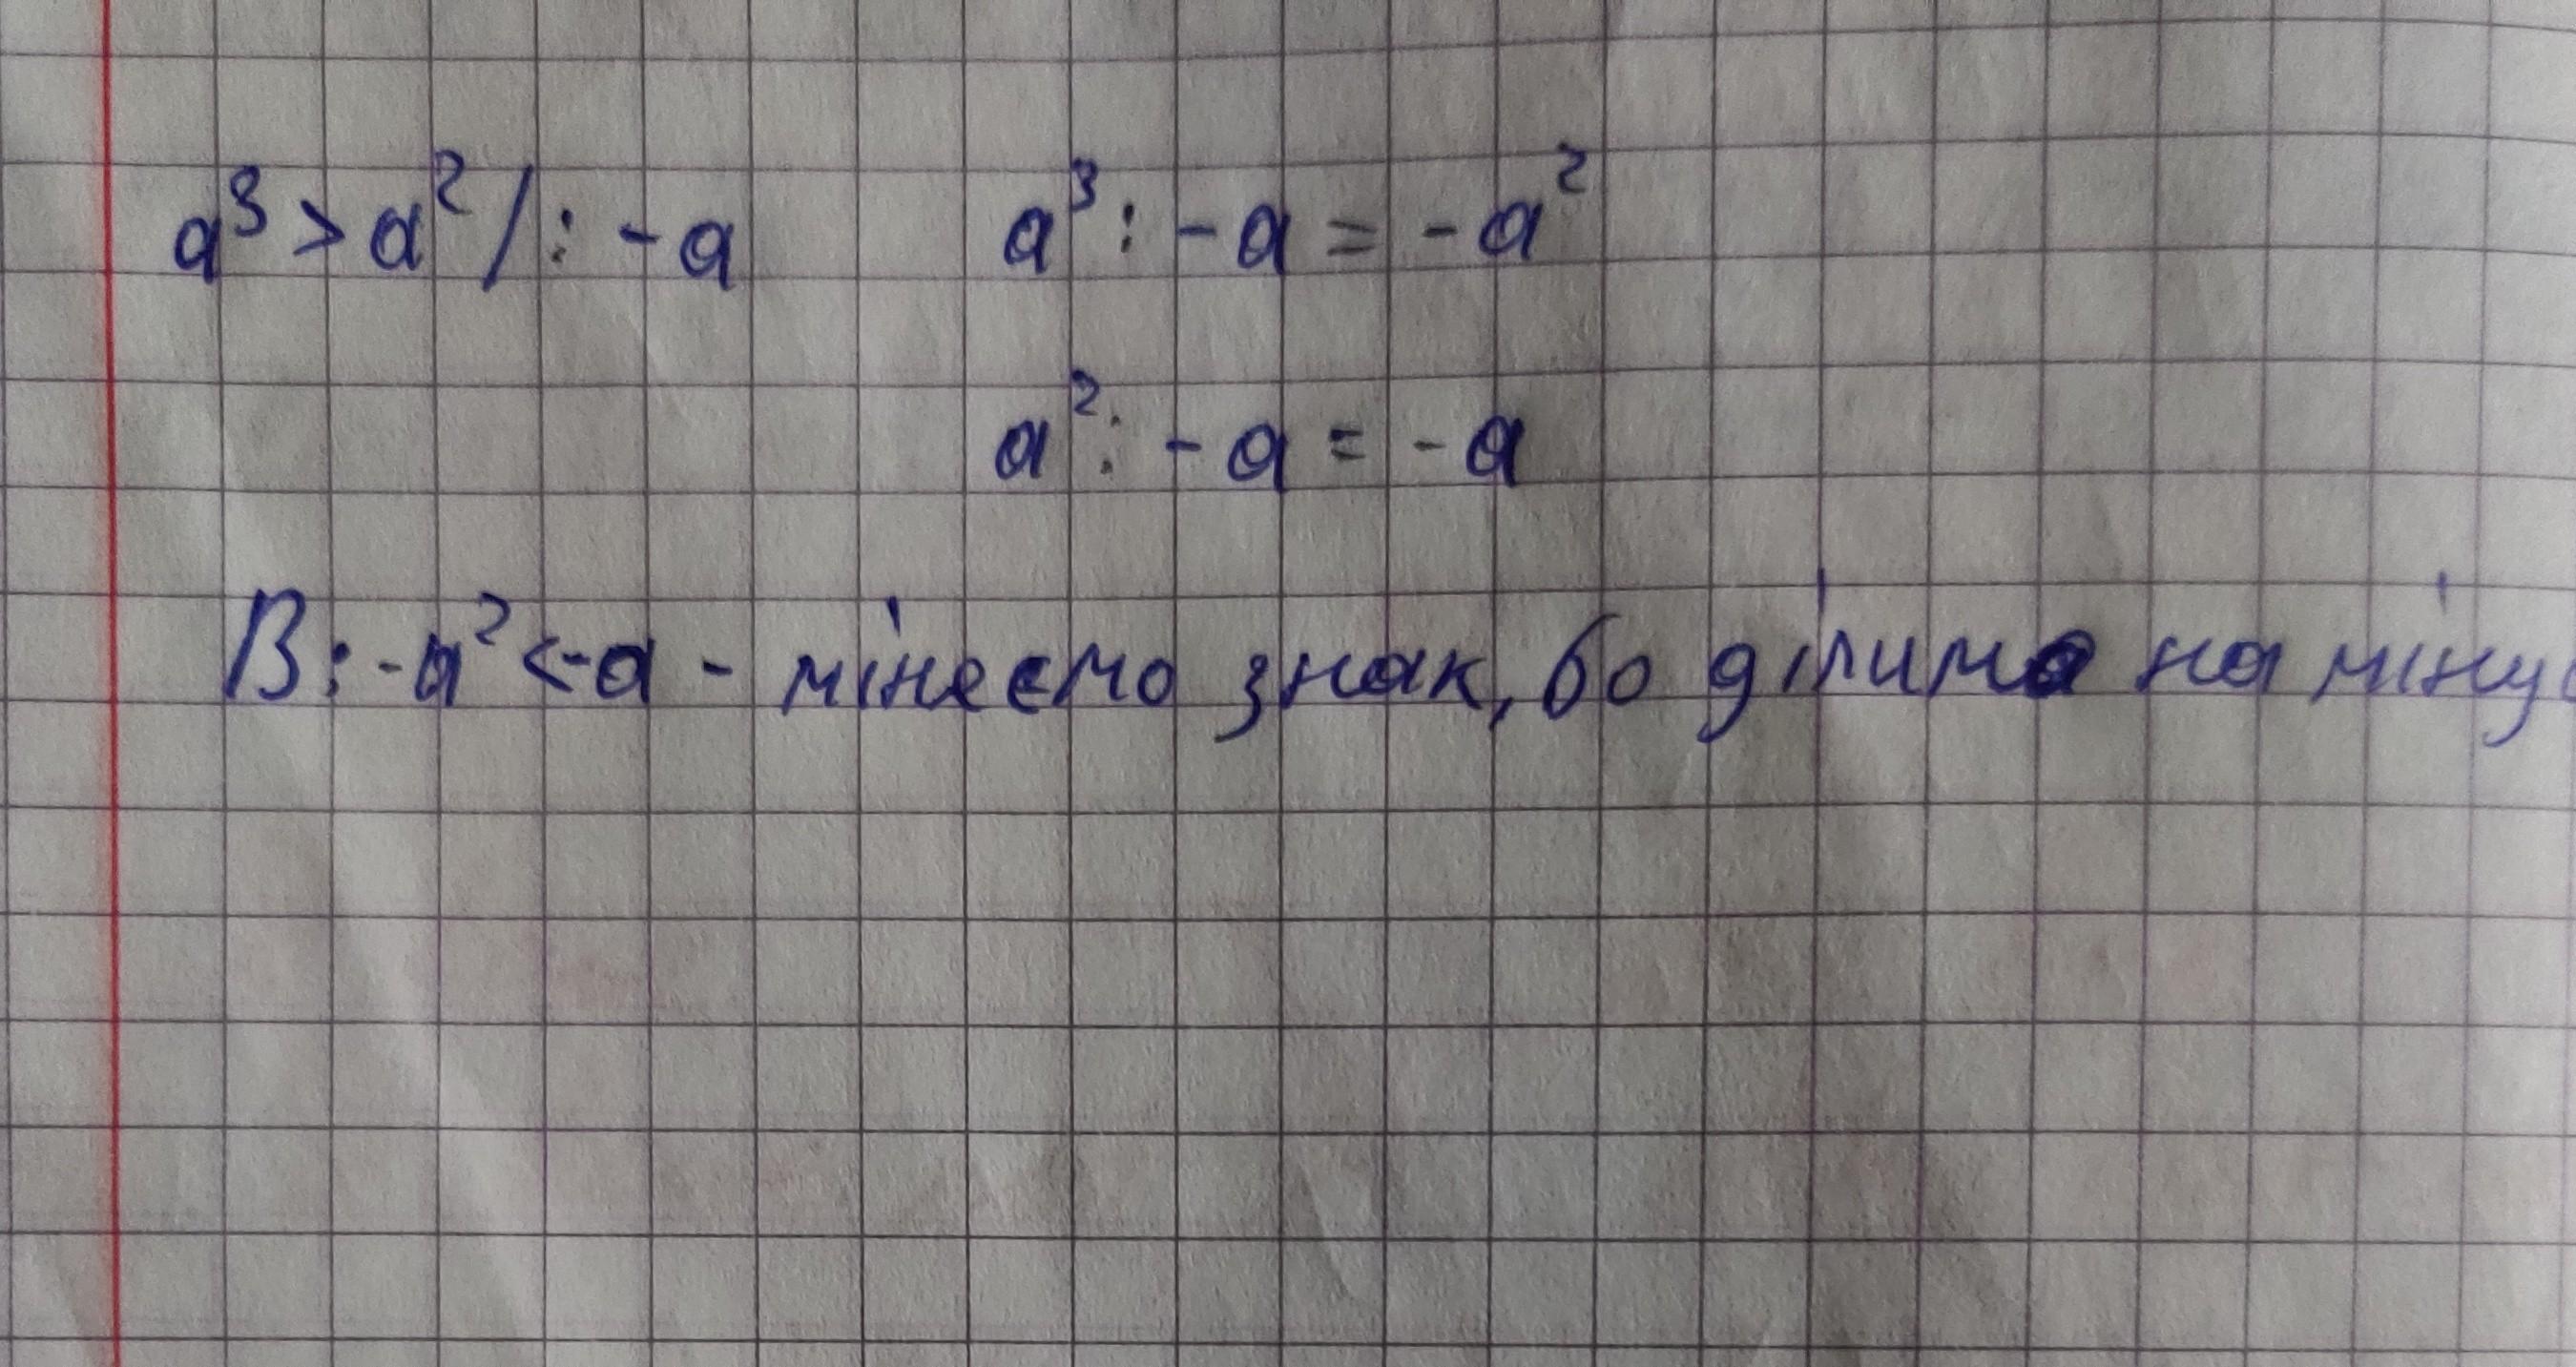 a³ > a² / : - a
a³ : - a = - a²
a² : - a = - a
В: - a² < - a - міняємо знак, бо ділимо на міну